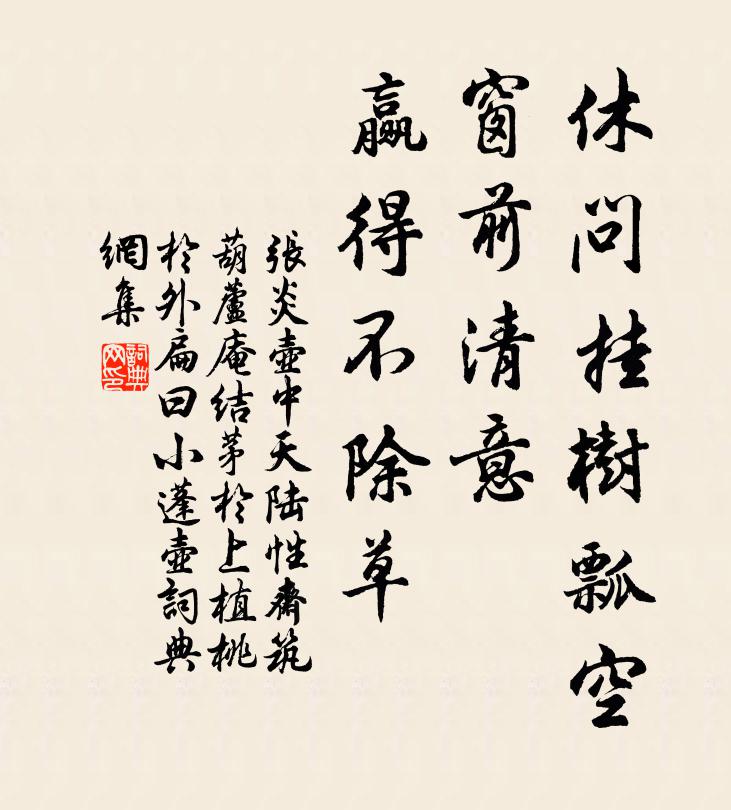 休问挂樹瓢空
窗前清意
贏得不除草
張炎壺中天陆性齋筑
葫蘆庵结茅於上植桃
於外扁曰小蓬壺詞典
網集
詞典
网印